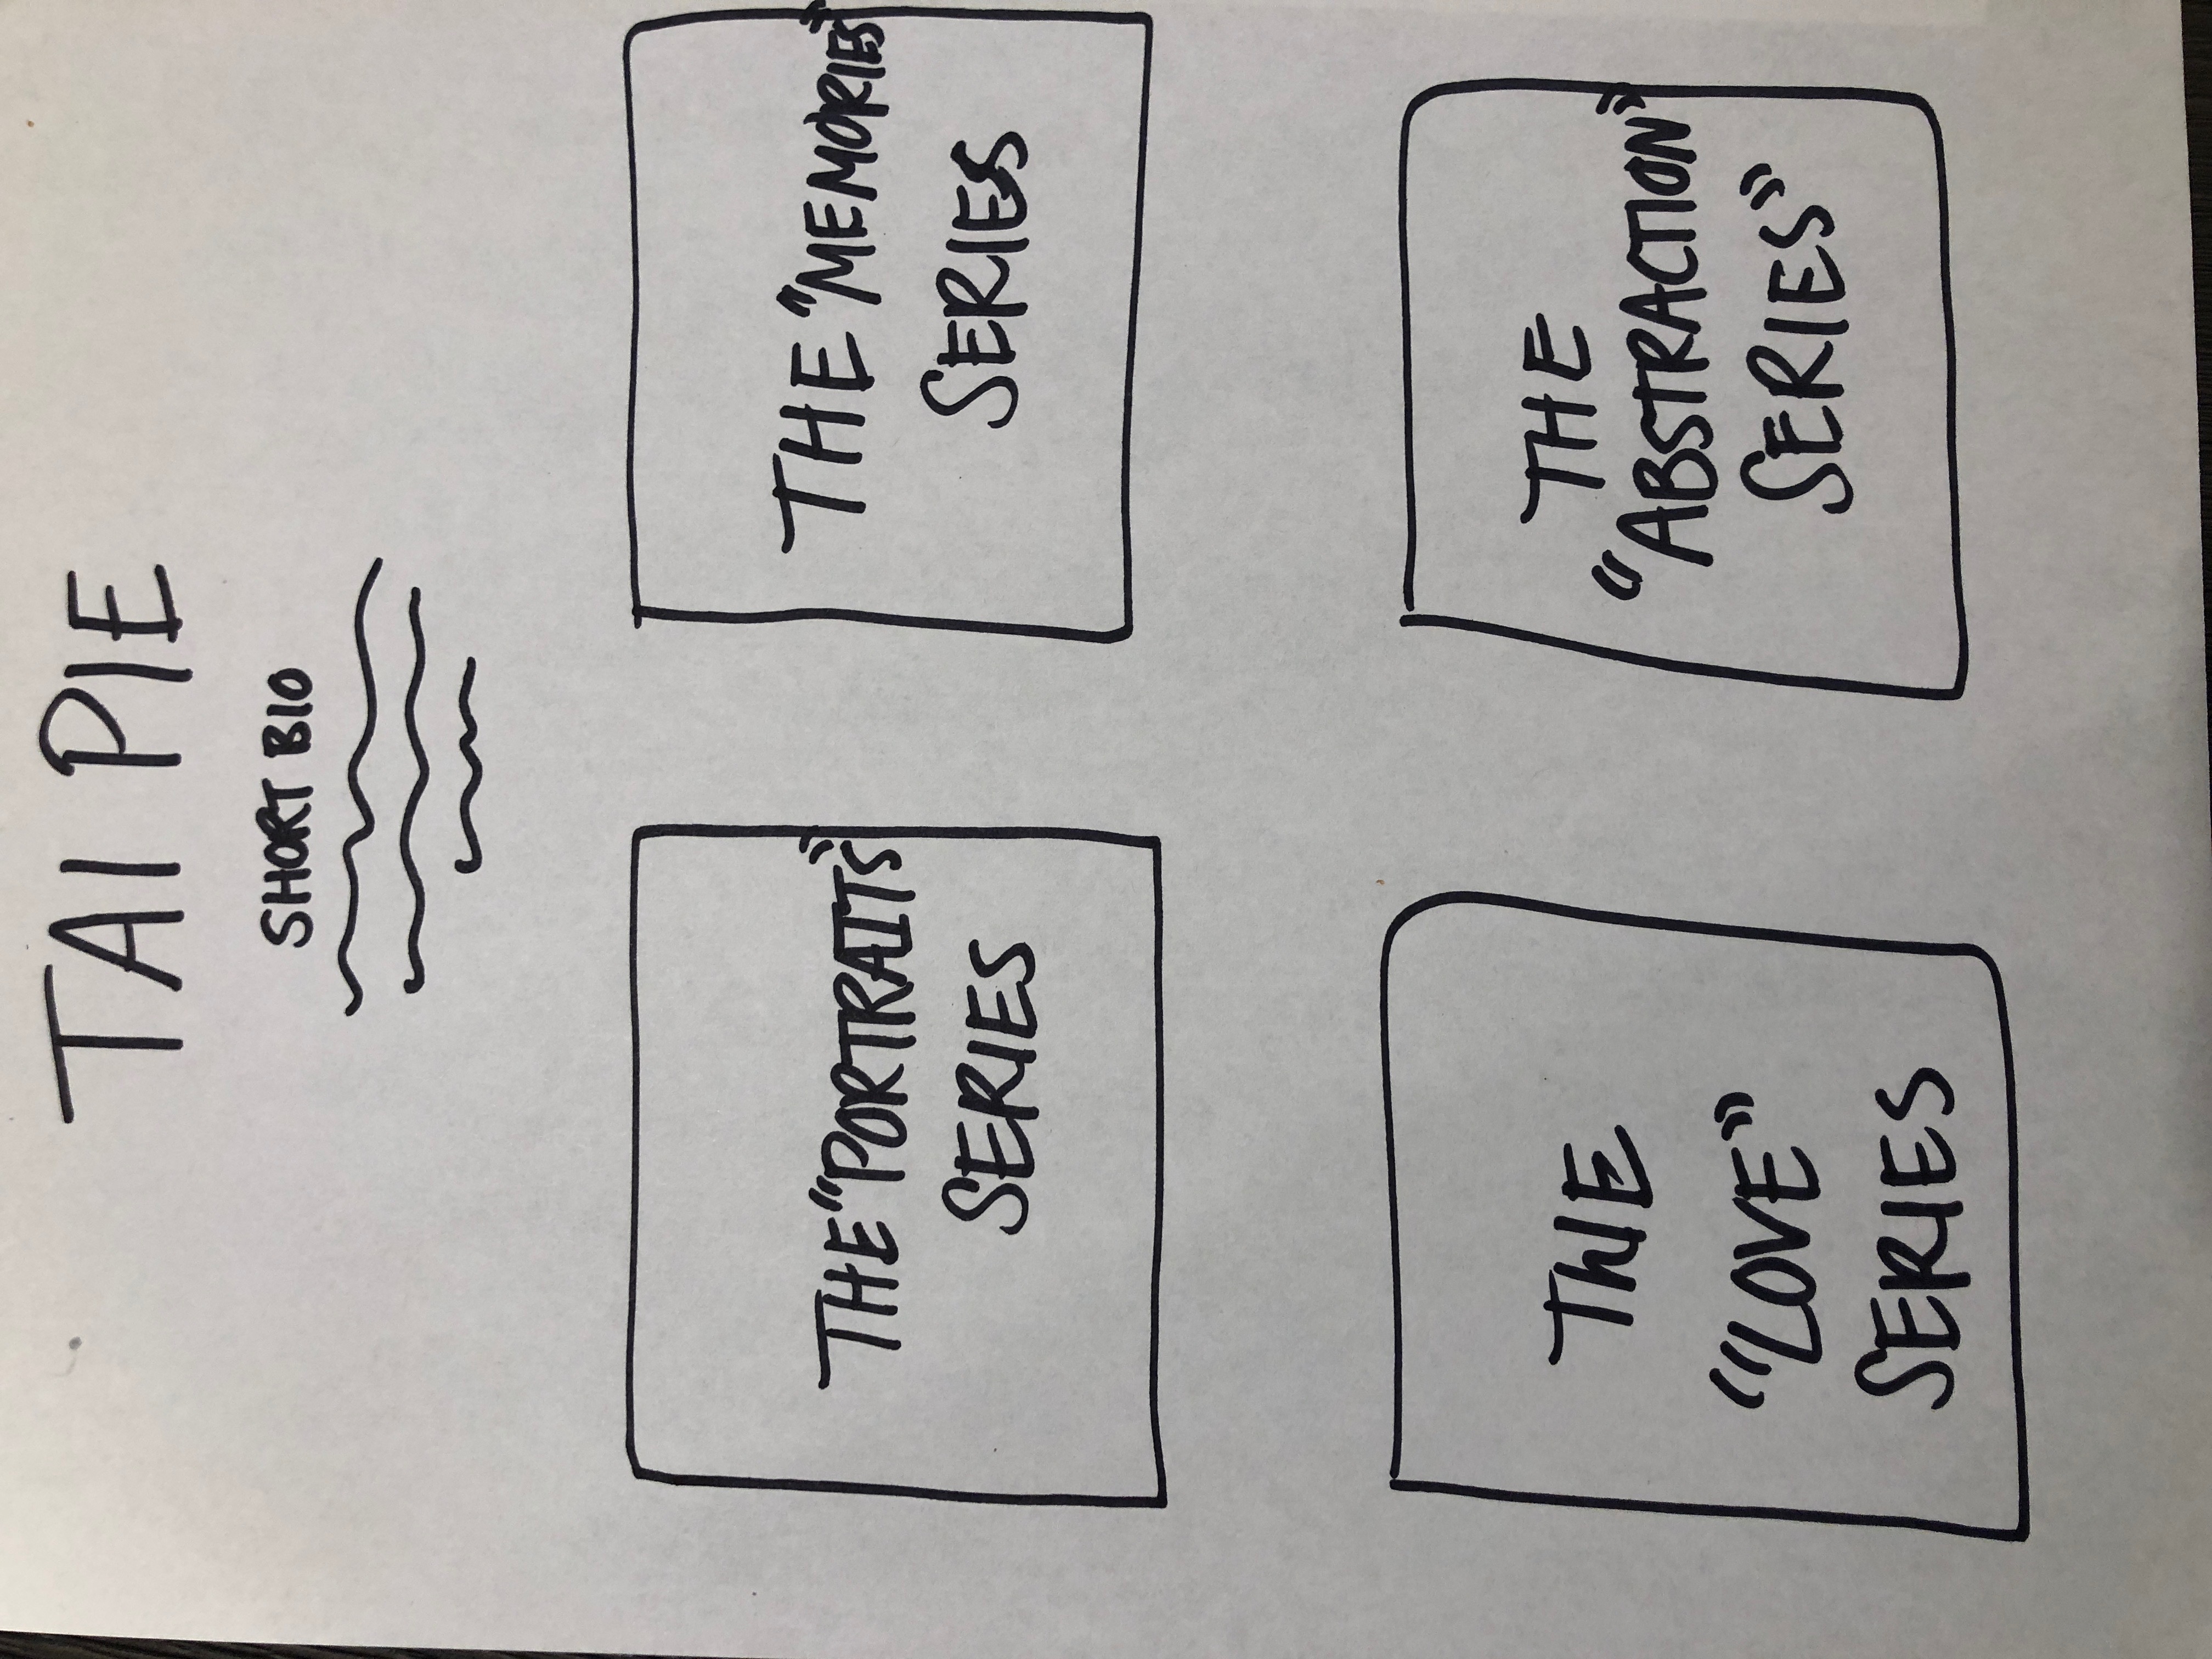 TAI PIE
SHORT BIO
THE "PORTRAITS"
SERIES
THE "MEMORIES"
SERIES
THE
"LOVE"
SERIES
THE
"ABSTRACTION"
SERIES"